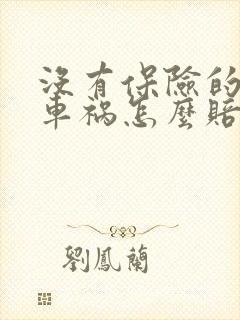 没有保險的
車祸怎麼賠
劉鳳蘭